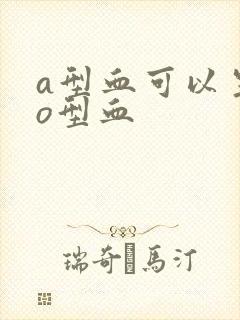 a型血可以生
o型血
瑞奇馬汀